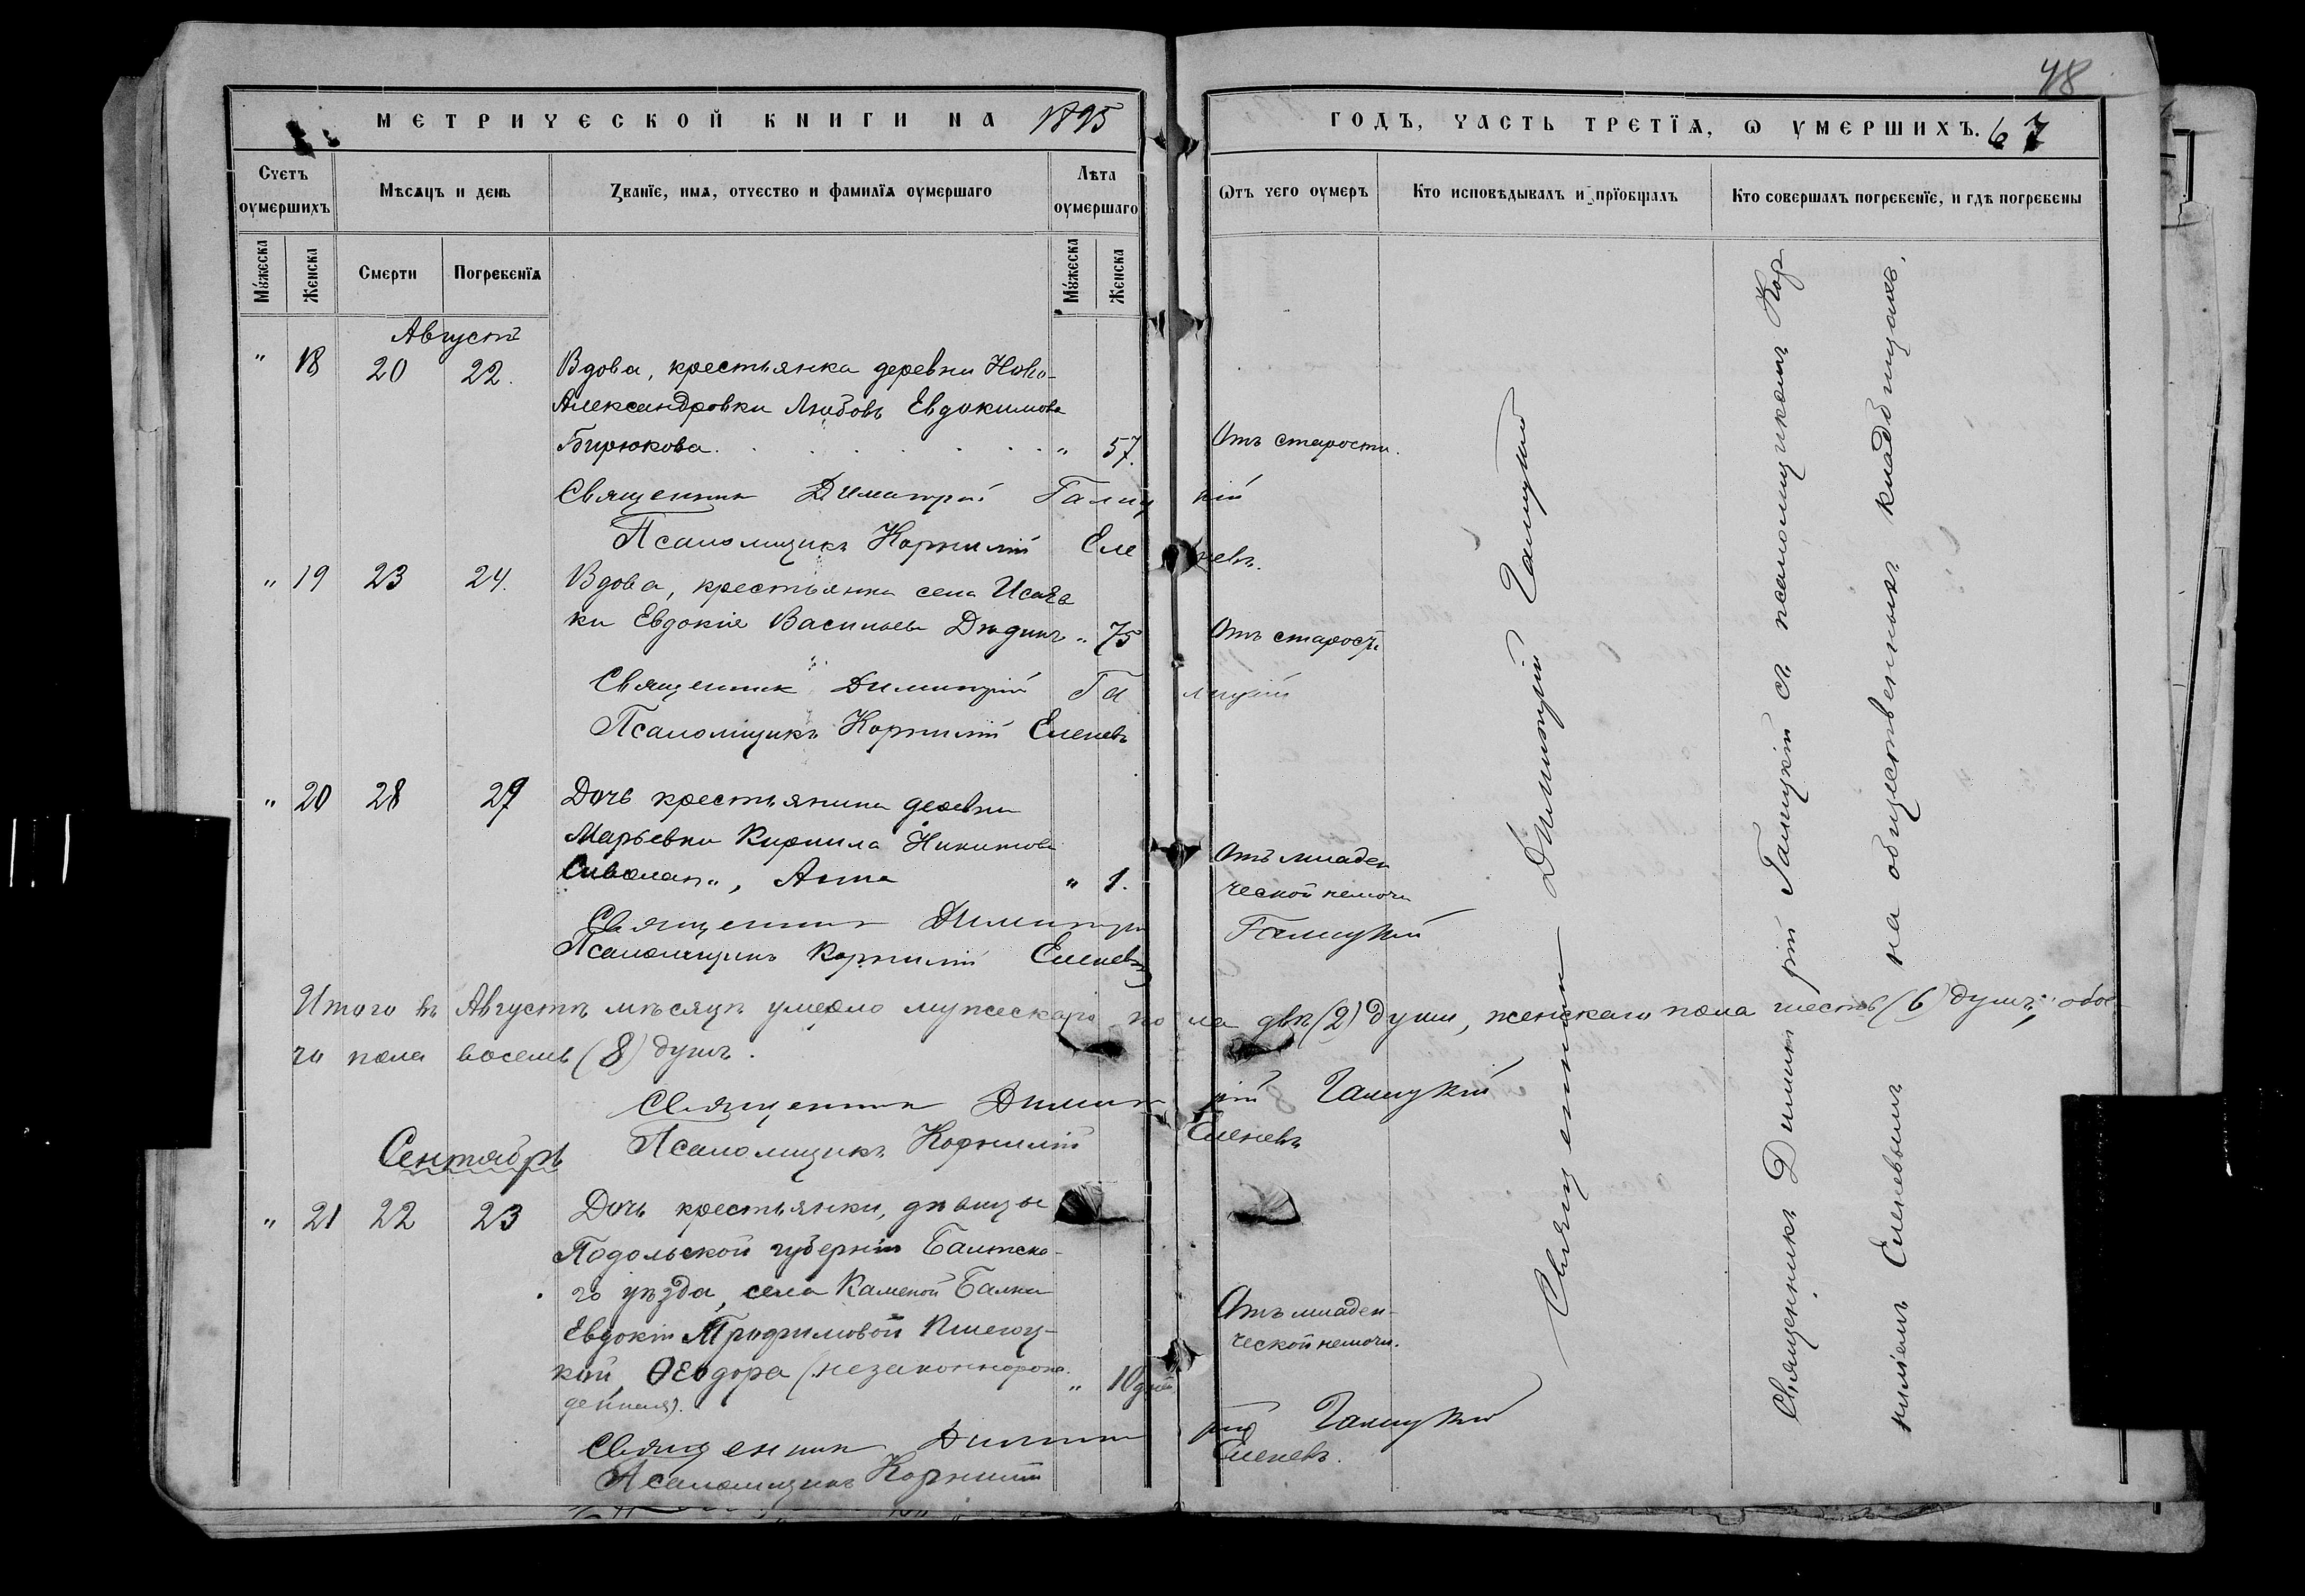 48
МЕТРИЧЕСКОЙ КНИГИ НА 1895
ГОДЪ, ЧАСТЬ ТРЕТІЯ, Ѡ УМЕРШИХЪ. 67
Счетъ оумершихъ
Мѣсяцъ и день
Званіе, имя, отчество и фамилія оумершаго
Лѣта оумершаго
Ѿтъ чего оумеръ
Кто исповѣдывалъ и пріобщалъ
Кто совершалъ погребеніе, и гдѣ погребены
Мужеска
Женска
Смерти
Погребенія
Мужеска
Женска
Августъ
" 18 20 22. Вдова, крестьянка деревни Ново-
Александровки Любовь Евдокимова
Бирюкова. " 57. Отъ старости.
Священникъ Димитрій Галицкій
Псаломщикъ Корнилій Еленевъ.
" 19 23 24. Вдова, крестьянка села Исаев
ки Евдокія Васильева " 75 Отъ старости
Священникъ Димитрій Галицкій
Псаломщикъ Корнилій Еленевъ
" 20 28 29 Дочь крестьянина деревни
Марьевки Кирилла Никитова
Анна " 1. Отъ младен
ческой немочи
Священникъ Димитрій Галицкій
Псаломщикъ Корнилій Еленевъ
Итого въ Августѣ мѣсяцѣ умерло мужескаго пола двѣ (2) души, женскаго пола шесть (6) душъ, обое-
го пола восемь (8) душъ.
Священникъ Димитрій Галицкій
Псаломщикъ Корнилій Еленевъ
Сентябрь
" 21 22 23 Дочь крестьянки, дѣвицы
Подольской губерніи Балтска-
го уѣзда, села Каменой Балки
Евдокіи Трофимовой
кой, Ѳеодора (незаконнорож-
денная). " 10 дней
Отъ младен-
ческой немочи.
Священникъ Димитрій Галицкій
Псаломщикъ Корнилій Еленевъ.
Священникъ Димитрій Галицкій
Священникъ Димитрій Галицкій съ псаломщикомъ Кор-
ниліемъ Еленевымъ на общественныхъ кладбищахъ.